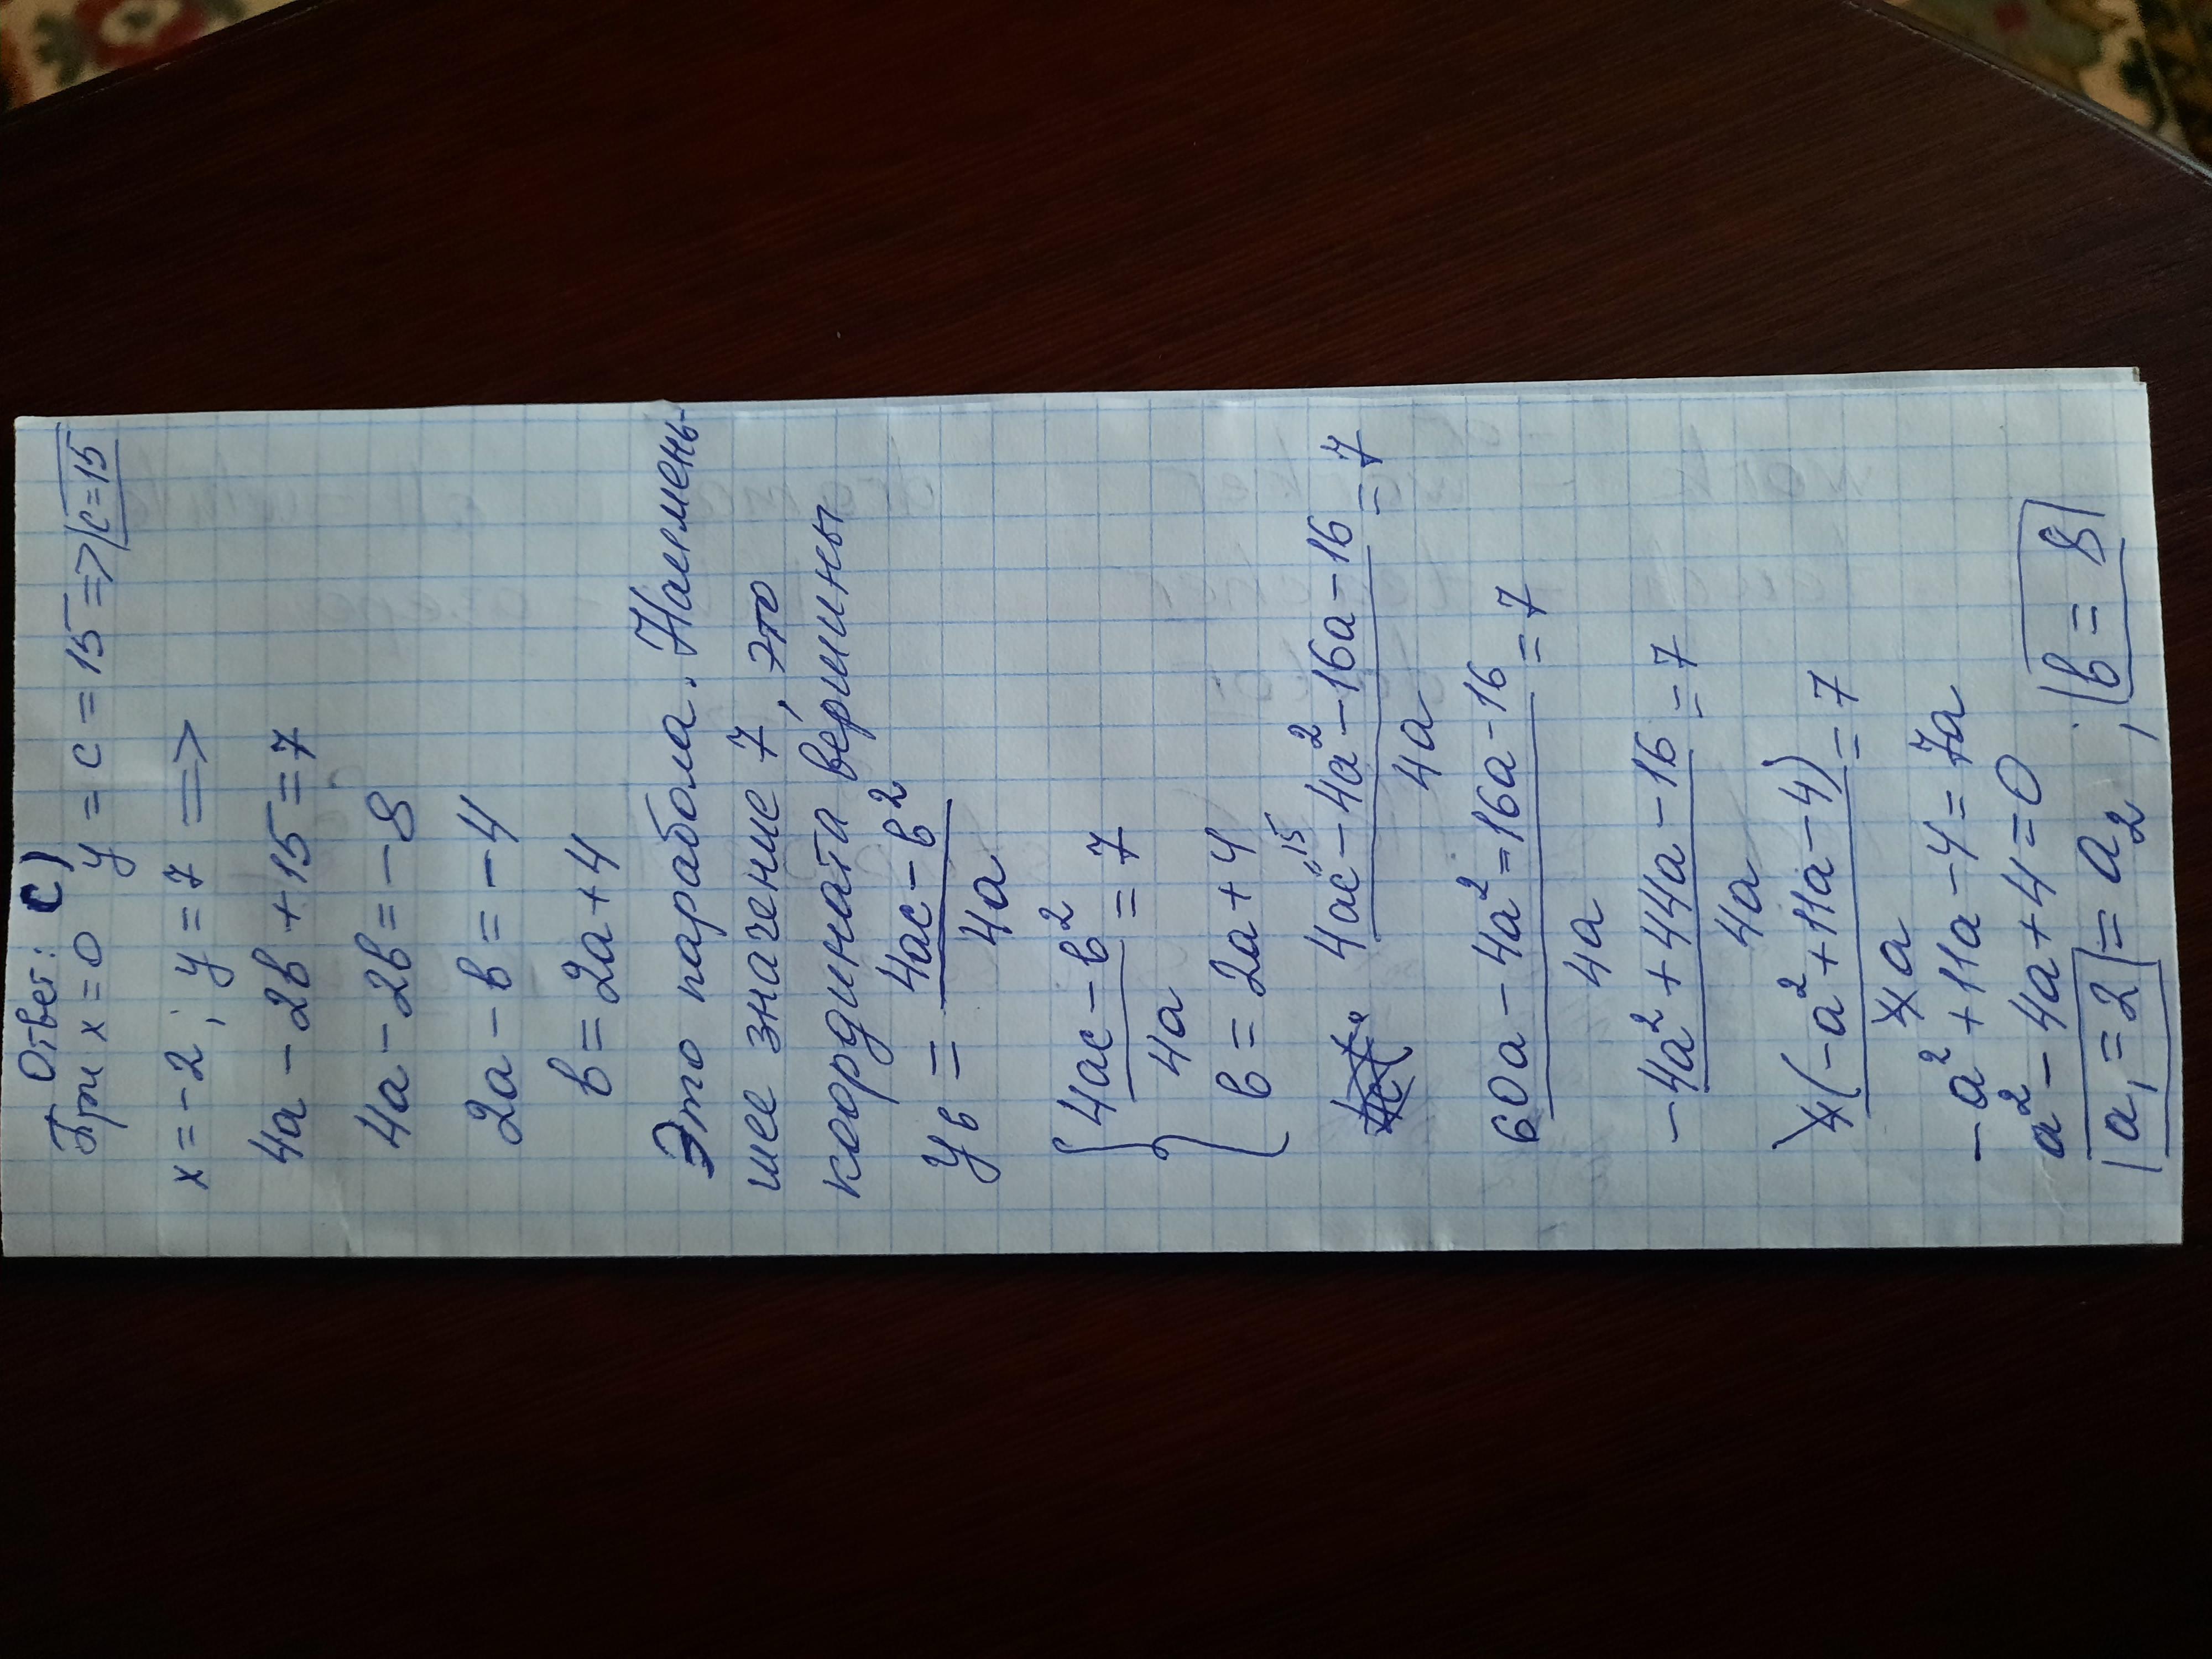 Ответ: С)
При x = 0 y = c = 15 => c = 15
x = -2 ; y = 7 =>
4a - 2b + 15 = 7
4a - 2b = -8
2a - b = -4
b = 2a + 4
Это парабола. Наимень-
шее значение 7, это
координата вершины
yв = (4ac - b²)/4a
{ (4ac - b²)/4a = 7
b = 2a + 4
(4ac"15 - 4a² - 16a - 16)/4a = 7
(60a - 4a² = 16a - 16)/4a = 7
(-4a² + 44a - 16)/4a = 7
4(-a² + 11a - 4)/4a = 7
-a² + 11a - 4 = 7a
a² - 4a + 4 = 0
a₁ = 2 = a₂ ; b = 8